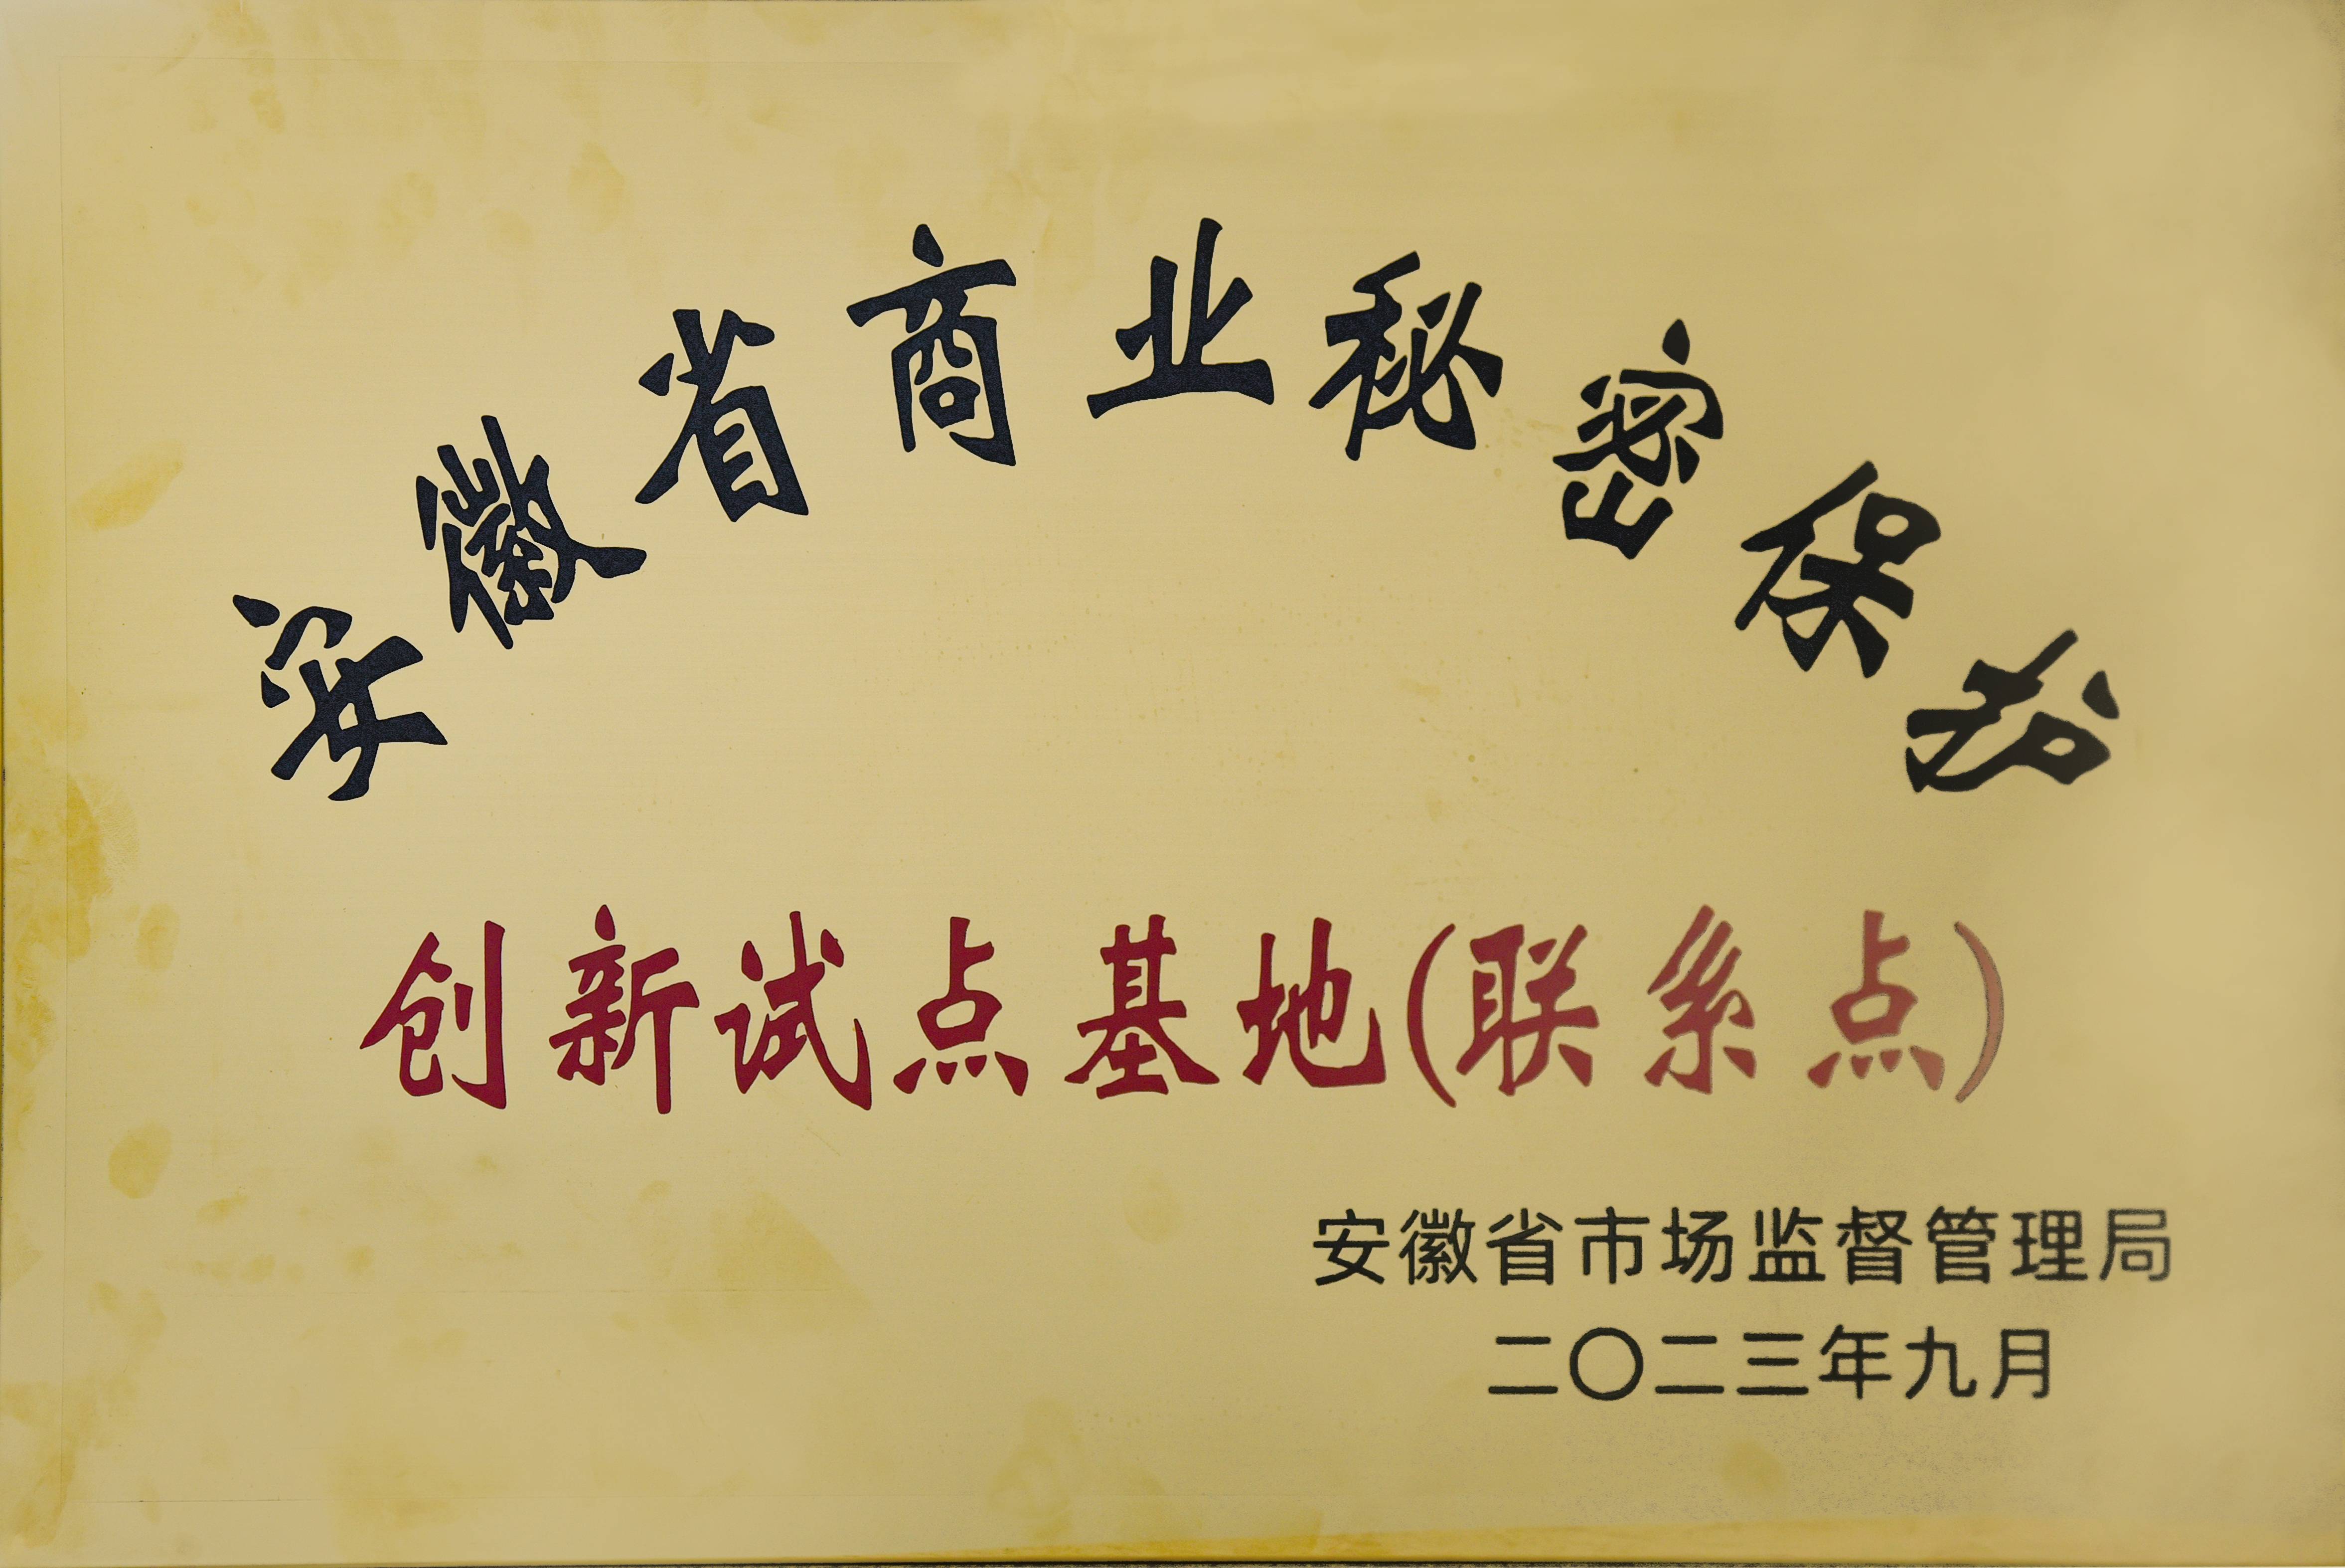 安徽省商业秘密保护
创新试点基地(联系点)
安徽省市场监督管理局
二〇二三年九月